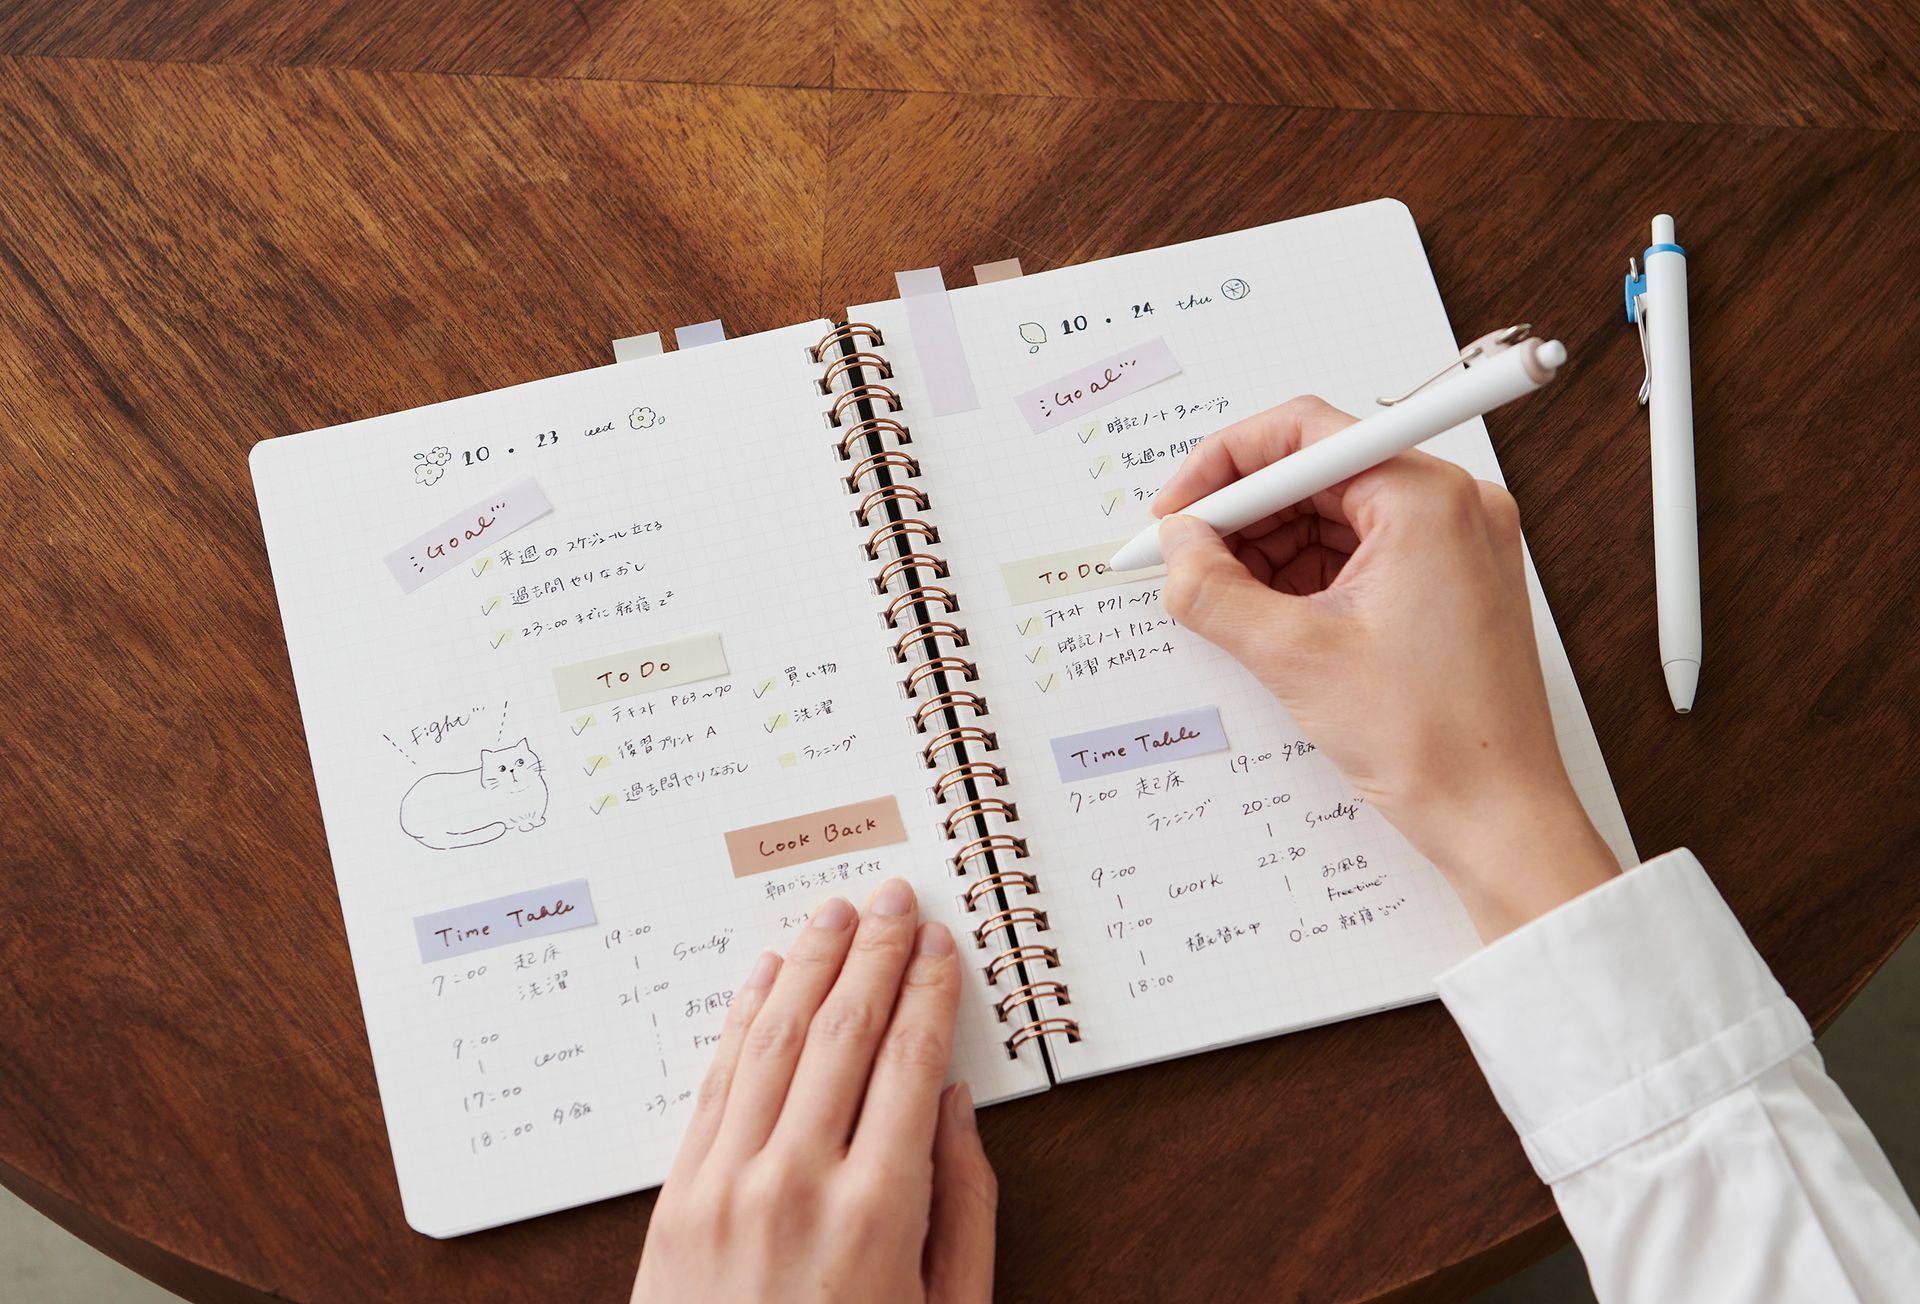 10・23 wed
Goal
来週のスケジュール立てる
過去問やりなおし
23:00までに就寝 zz
ToDo
テキスト P63〜70
復習プリント A
過去問やりなおし
買い物
洗濯
ランニング
Fight
Look Back
朝から洗濯できて
スッキ
Time Table
7:00 起床
洗濯
9:00
work
17:00
18:00 夕飯
19:00
Study
21:00
お風呂
Free
23:00
10・24 thu
Goal
暗記ノート 3ページ分
先週の問題
ToDo
テキスト P71〜75
暗記ノート P12〜1
復習 大問2〜4
Time Table
7:00 起床
ランニング
9:00
work
17:00
植え替え中
18:00
19:00 夕飯
20:00
Study
22:30
お風呂
Freetime
0:00 就寝